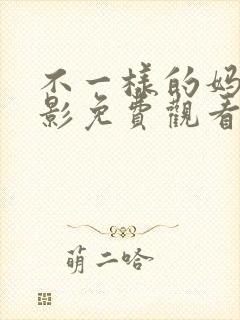 不一樣的媽
影免費觀看
萌二哈